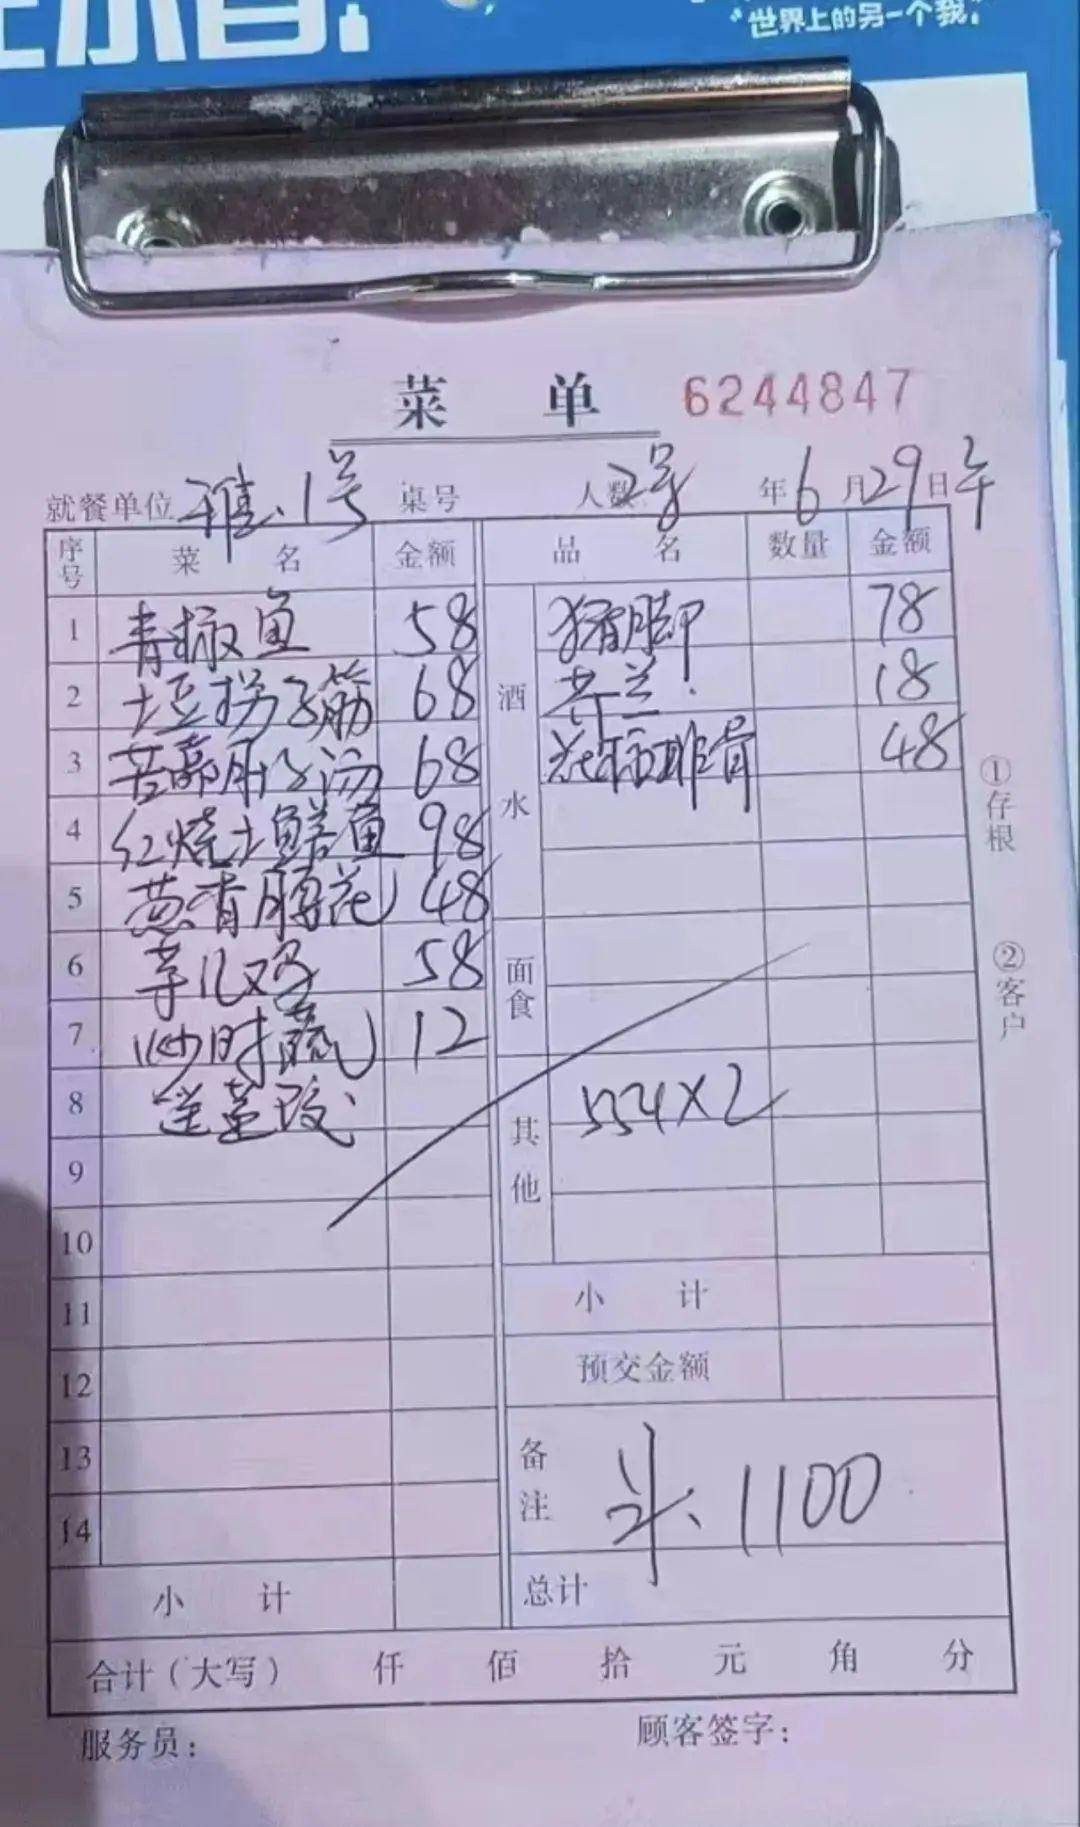 "世界上的另一个我"
菜 单 6244847
就餐单位 雅.1号 桌号 人数 2号 年 6 月 29 日 午
序号 菜 名 金额 品 名 数量 金额
1 青椒鱼 58 猪脚 78
2 土豆拐子筋 68 酒 芥兰 18
3 苦藠肚子汤 68 排骨 48
4 红烧土鳝鱼 98 水
5 葱香腰花 48
6 芋儿鸡 58 面食
7 炒时蔬 12
8 554X2 其他
9
10
11 小 计
12 预交金额
13 备注 斗、1100
14
小 计 总计
合计(大写) 仟 佰 拾 元 角 分
服务员: 顾客签字:
①存根
②客户